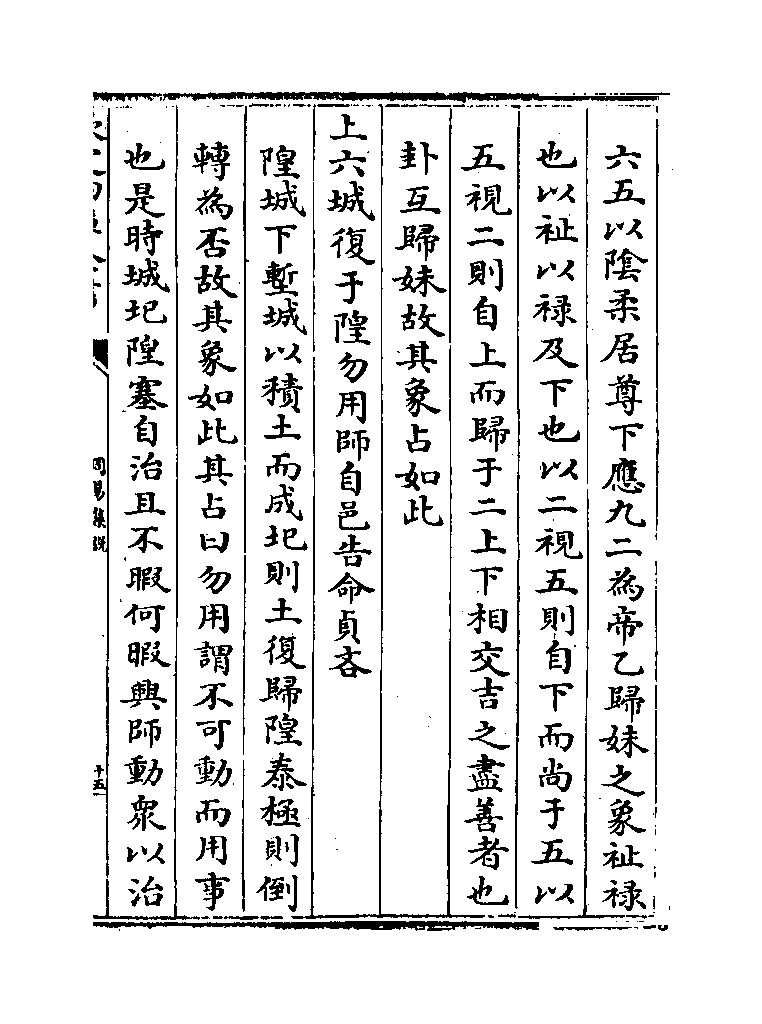 六五以陰柔居尊下應九二為帝乙歸妹之象祉祿
也以祉以祿及下也以二視五則自下而尚于五以
五視二則自上而歸于二上下相交吉之盡善者也
卦互歸妹故其象占如此
上六城復于隍勿用師自邑告命貞吝
隍城下塹城以積土而成圮則土復歸隍泰極則倒
轉為否故其象如此其占曰勿用謂不可動而用事
也是時城圮隍塞自治且不暇何暇興師動衆以治
周易集說
十五